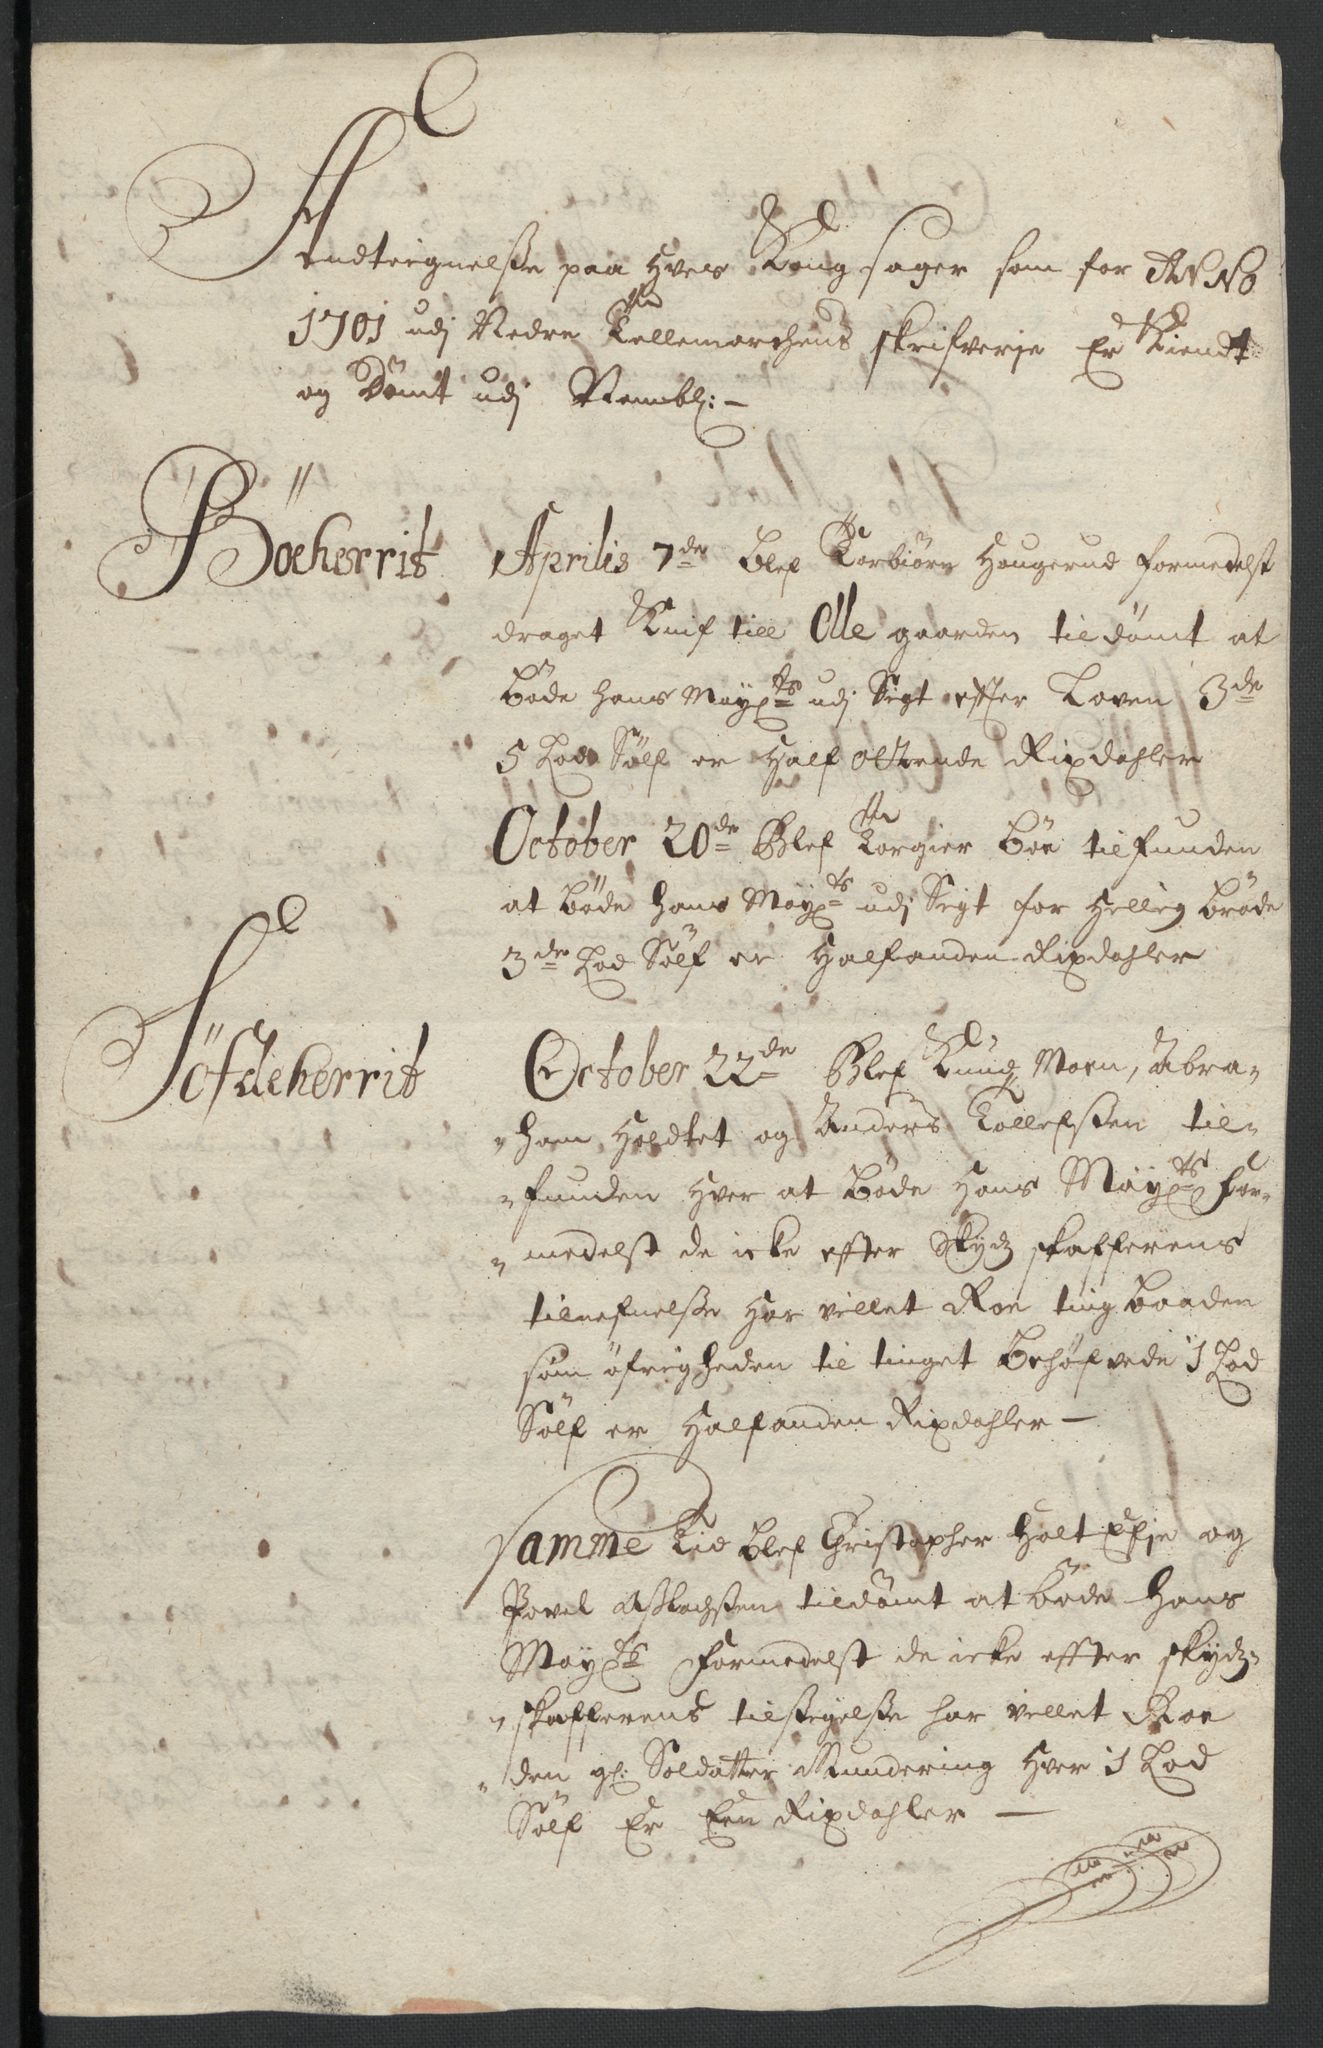 Andteignelsse paa hves Kong sager som for Anno
1701 udj Nedre Tellemarchens skrifverje Er Kiendt
og Dømt udj Rembl: –
Böeherrit
Aprilis 7de blef Torbiörn Haugerud formedelst
draget Knif till Olle gaarden tildömt at
böde hans Mayts udj Sigt effter Loven 3de
5 Lod Sölf er Half ottende Rixdahler
October 20de Blef Torgier Böe tilfunden
at böde hans Mayts udj Sigt for Hellig bröde
3de Lod Sölf er Halfanden Rixdahler
Höfdeherrit
October 22de Blef Knud Moen, Abra-
-ham Holdtet og Anders Tollefssen til-
-funden hver at böde Hans Mayts For-
-medelst de icke effter Skydz skafferens
tilnefnelsse har villet Roe ting baaden
som öfrigheden til tinget behöfvede 1 Lod
Sölf er Halfanden Rixdahler –
Samme tid blef Christopher Holt og
Povel Asslachssen tildömt at böde Hans
Mayts Formedelst de icke effter skydz-
-skafferens tilsigelsse har villet Roe
den gl: Soldatter Mundering Hver 1 Lod
Sölf Er Een Rixdahler –